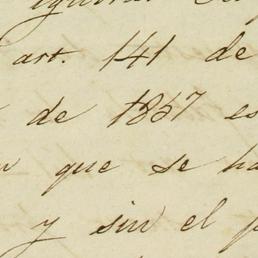 art. 141 de
de 1857 es
que se ha
y sin el